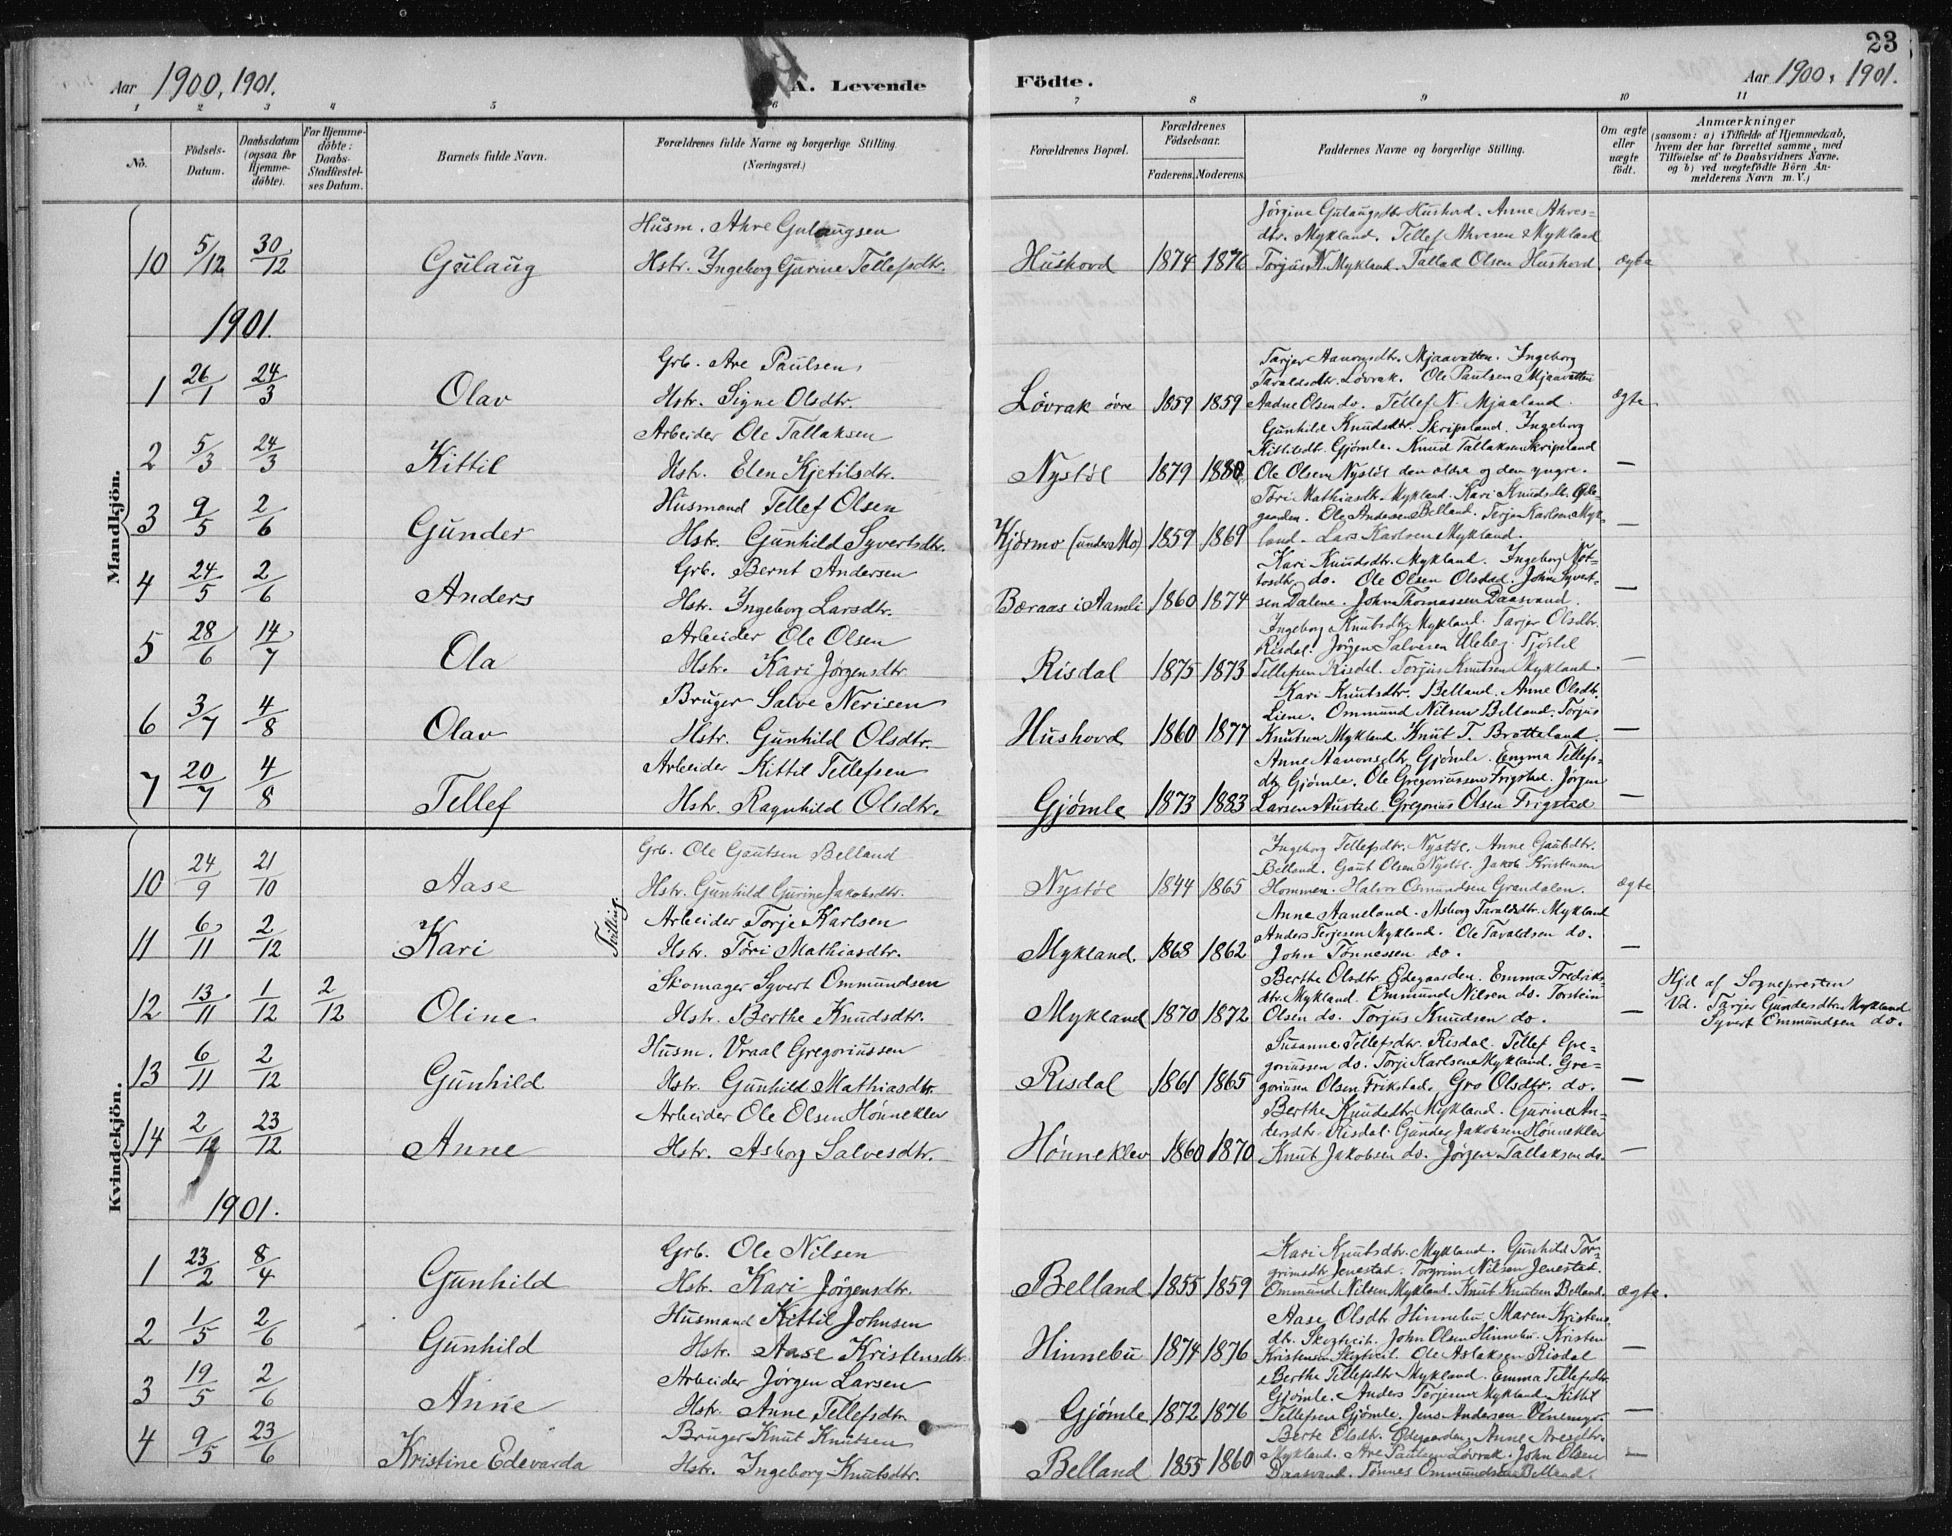 23
Aar 1900, 1901.
A. Levende Födte.
Aar 1900, 1901.
1 2 3 4 5 6 7 8 9 10 11
No.
Födsels-Datum.
Daabsdatum (ogsaa for Hjemme-döbte).
For Hjemme-döbte: Daabs-Stadfæstel-ses Datum.
Barnets fulde Navn.
Forældrenes fulde Navne og borgerlige Stilling.
(Næringsvei.)
Forældrenes Bopæl.
Forældrenes Födselsaar.
Faderens. Moderens.
Faddernes Navne og borgerlige Stilling.
Om ægte eller uægte födt.
Anmærkninger
(saasom: a) i Tilfælde af Hjemmedaab,
hvem der har forrettet samme, med
Tilföielse af to Daabsvidners Navne,
og b) ved uægtefödte Börn An-
melderens Navn m. V.)
Mandkjön.
Husm. Ahre Gulaugsen
Jørgine Gulaugsdtr Hushovd. Anne Ahres-
dtr. Mykland. Tellef Ahresen Mykland
10 5/12 30/12 Gulaug Hstr. Ingeborg Gurine Tellefsdtr. Hushovd 1874 1876 Torjus N. Mykland. Tallak Olsen Hushovd. ægte
1901.
Grb. Are Paulsen
Tarjer Aanonsdtr. Mjaavatten. Ingeborg
Taraldsdtr. Løvrak. Ole Paulsen Mjaavatten
1 26/1 24/3 Olav Hstr. Signe Olsdtr. Løvrak övre 1859 1859 Aadne Olsen do. Tellef N. Mjaaland. ægte
Arbeider Ole Tallaksen
Gunhild Knudsdtr. Skripeland. Ingeborg
Kittilsdtr. Gjömle. Knud Tallaksen Skripeland
2 5/3 24/3 Kittil Hstr. Elen Kjetilsdtr. Nystöl 1879 1880 Ole Olsen Nystöl den eldre og den yngre. —
Husmand Tellef Olsen
Töri Mathiasdtr. Mykland. Kari Knudsdtr. Øde-
gaarden. Ole Andersen Belland. Torje Karlsen Myk-
3 9/5 2/6 Gunder Hstr. Gunhild Syvertsdtr. Kjörmo (under Mo) 1859 1869 land. Lars Karlsen Mykland. —
Grb. Bernt Andersen
Kari Knudsdtr. Mykland. Ingeborg
do. Ole Olsen Olsdad. John Syvert-
4 24/5 2/6 Anders Hstr. Ingeborg Larsdtr. Bæraas i Aamli 1860 1874 sen Dalene. John Thomassen Daasvand. —
Arbeider Ole Olsen
Ingeborg Knutsdtr. Mykland. Tarjer Olsdtr.
Risdal. Jörgen Salvesen Uleberg.
5 28/6 14/7 Ola Hstr. Kari Jörgensdtr. Risdal 1875 1873 Tellefsen Risdal. Torjus Knutsen Mykland. —
Bruger Salve Nerisen
Kari Knutsdtr. Belland. Anne Olsdtr.
Liene. Ommund Nilsen Belland. Torjus
6 3/7 4/8 Olav Hstr. Gunhild Olsdtr. Hushovd 1860 1877 Knutsen Mykland. Knut T. Bratteland. —
Arbeider Kittil Tellefsen
Anne Aavonsdtr. Gjömle. Emma Tellefs-
dtr. Gjömle. Ole Gregoriussen Frigstad. Jörgen
7 20/7 4/8 Tellef Hstr. Ragnhild Olsdtr. Gjömle 1873 1883 Larsen Austad. Gregorius Olsen Frigstad —
Kvindekjön.
Grb. Ole Gautsen Belland
Ingeborg Tellefsdtr. Nystöl. Anne Gautsdtr.
Belland. Gaut Olsen Nystöl. Jakob Kristensen
10 24/9 21/10 Aase Hstr. Gunhild Gurine Jakobsdtr. Nystöl 1844 1865 Hommen. Halvor Osmundsen Grandalen. ægte
Tvilling.
Arbeider Torje Karlsen
Anne Aaneland. Asborg Taraldsdtr. Mykland
Anders Terjesen Mykland. Ole Taraldsen do.
11 6/11 2/12 Kari Hstr. Töri Mathiasdtr. Mykland. 1868 1862 John Tönnessen do. —
Skomager Syvert Ommundsen
Berthe Olsdtr. Ødegaarden. Emma Fredriks-
dtr. Mykland. Ommund Nilsen do. Torstein
12 13/11 1/12 2/12 Oline Hstr. Berthe Knudsdtr. Mykland 1870 1872 Olsen do. Torjus Knudsen do. —
Hjd af Sognepresten
Vd. Tarjer Gundersdtr. Mykland
Syvert Ommundsen do.
Husm. Vraal Gregoriussen
Susanne Tellefsdtr. Risdal. Tellef Gre-
goriussen do. Torje Karlsen Mykland. Gre-
13 6/11 2/12 Gunhild Hstr. Gunhild Mathiasdtr. Risdal 1861 1865 goriusen Olsen Frikstad. Gro Olsdtr. do. —
Arbeider Ole Olsen Hönneklev
Berthe Knudsdtr. Mykland. Gurine An-
dersdtr. Risdal. Gunder Jakobsen Hönneklev
14 2/12 23/12 Anne Hstr. Asborg Salvesdtr. Hönneklev 1860 1870 Knut Jakobsen do. Jörgen Tallaksen do. —
1901.
Grb. Ole Nilsen
Kari Knutsdtr. Mykland. Gunhild Tor-
grimsdtr. Jenestad. Torgrim Nilsen Jenestad.
1 23/2 8/4 Gunhild Hstr. Kari Jörgensdtr. Belland 1855 1859 Ommund Nilsen Mykland. Knut Knutsen Belland. ægte.
Husmand Kittil Johnsen
Aase Olsdtr. Hinnebu. Maren Kristens-
dtr. John Olsen Hinnebu. Kristen
2 1/5 2/6 Gunhild Hstr. Aase Kristensdtr. Hinnebu 1874 1876 Kristensen Ole Aslaksen Risdal —
Arbeider Jörgen Larsen
Berthe Tellefsdtr. Mykland. Emma Tellefsdtr.
Gjömle. Anders Terjesen Mykland. Kittil
3 19/5 2/6 Anne Hstr. Anne Tellefsdtr. Gjömle 1872 1876 Tellefsen Gjömle. Jens Andersen —
Bruger Knut Knutsen
Berte Olsdtr. Ødegaarden. Anne Aresdtr.
4 9/5 23/6 Kristine Edevarda Mykland. Are Paulsen Lövrak. John Olsen —
Hstr. Ingeborg Knutsdtr. Belland 1855 1860 Daasvand. Tönnes Ommundsen Belland.